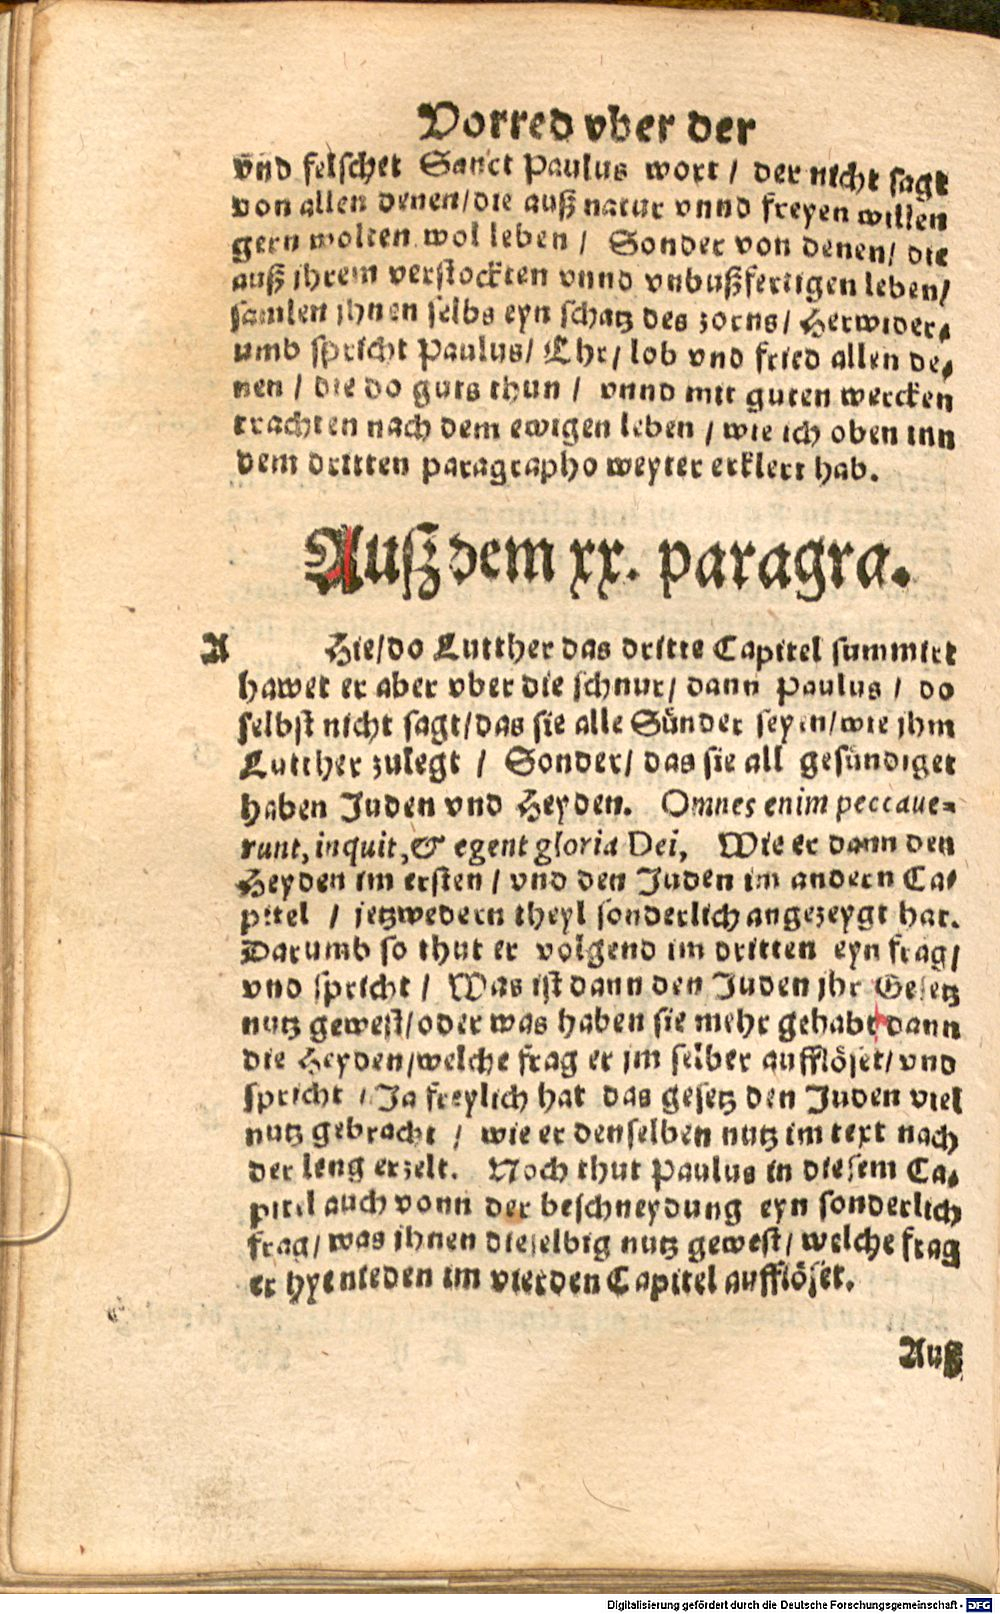 Vorred vber der
vnd felschet Sanct Paulus wort / der nicht sagt
von allen denen/die auß natur vnnd freyen willen
gern wolten wol leben / Sonder von denen/ die
auß jhrem verstockten vnnd vnbußfertigen leben/
samlen jhnen selbs eyn schatz des zorns/ Herwider⸗
umb spricht Paulus/ Ehr/ lob vnd fried allen de⸗
nen / die do guts thun / vnnd mit guten wercken
trachten nach dem ewigen leben / wie ich oben inn
dem dritten paragrapho weyter erklert hab.
Außz dem xx. paragra.
A Hie/do Lutther das dritte Capitel summirt
hawet er aber vber die schnur/ dann Paulus / do
selbst nicht sagt/das sie alle Sünder seyen/wie jhm
Lutther zulegt / Sonder/ das sie all gesündiget
haben Juden vnd Heyden. Omnes enim peccaue⸗
runt, inquit, & egent gloria Dei, Wie er dann den
Heyden im ersten / vnd den Juden im andern Ca⸗
pitel / jetzwedern theyl sonderlich angezeygt hat.
Darumb so thut er volgend im dritten eyn frag/
vnd spricht / Was ist dann den Juden jhr Gesetz
nutz gewest/oder was haben sie mehr gehabt dann
die Heyden/welche frag er jm selber aufflöset/vnd
spricht / Ja freylich hat das gesetz den Juden viel
nutz gebracht / wie er denselben nutz im text nach
der leng erzelt. Noch thut Paulus in diesem Ca⸗
pitel auch vonn der beschneydung eyn sonderlich
frag/ was jhnen dieselbig nutz gewest/ welche frag
er hyenieden im vierden Capitel aufflöset.
Auß
Digitalisierung gefördert durch die Deutsche Forschungsgemeinschaft - DFG